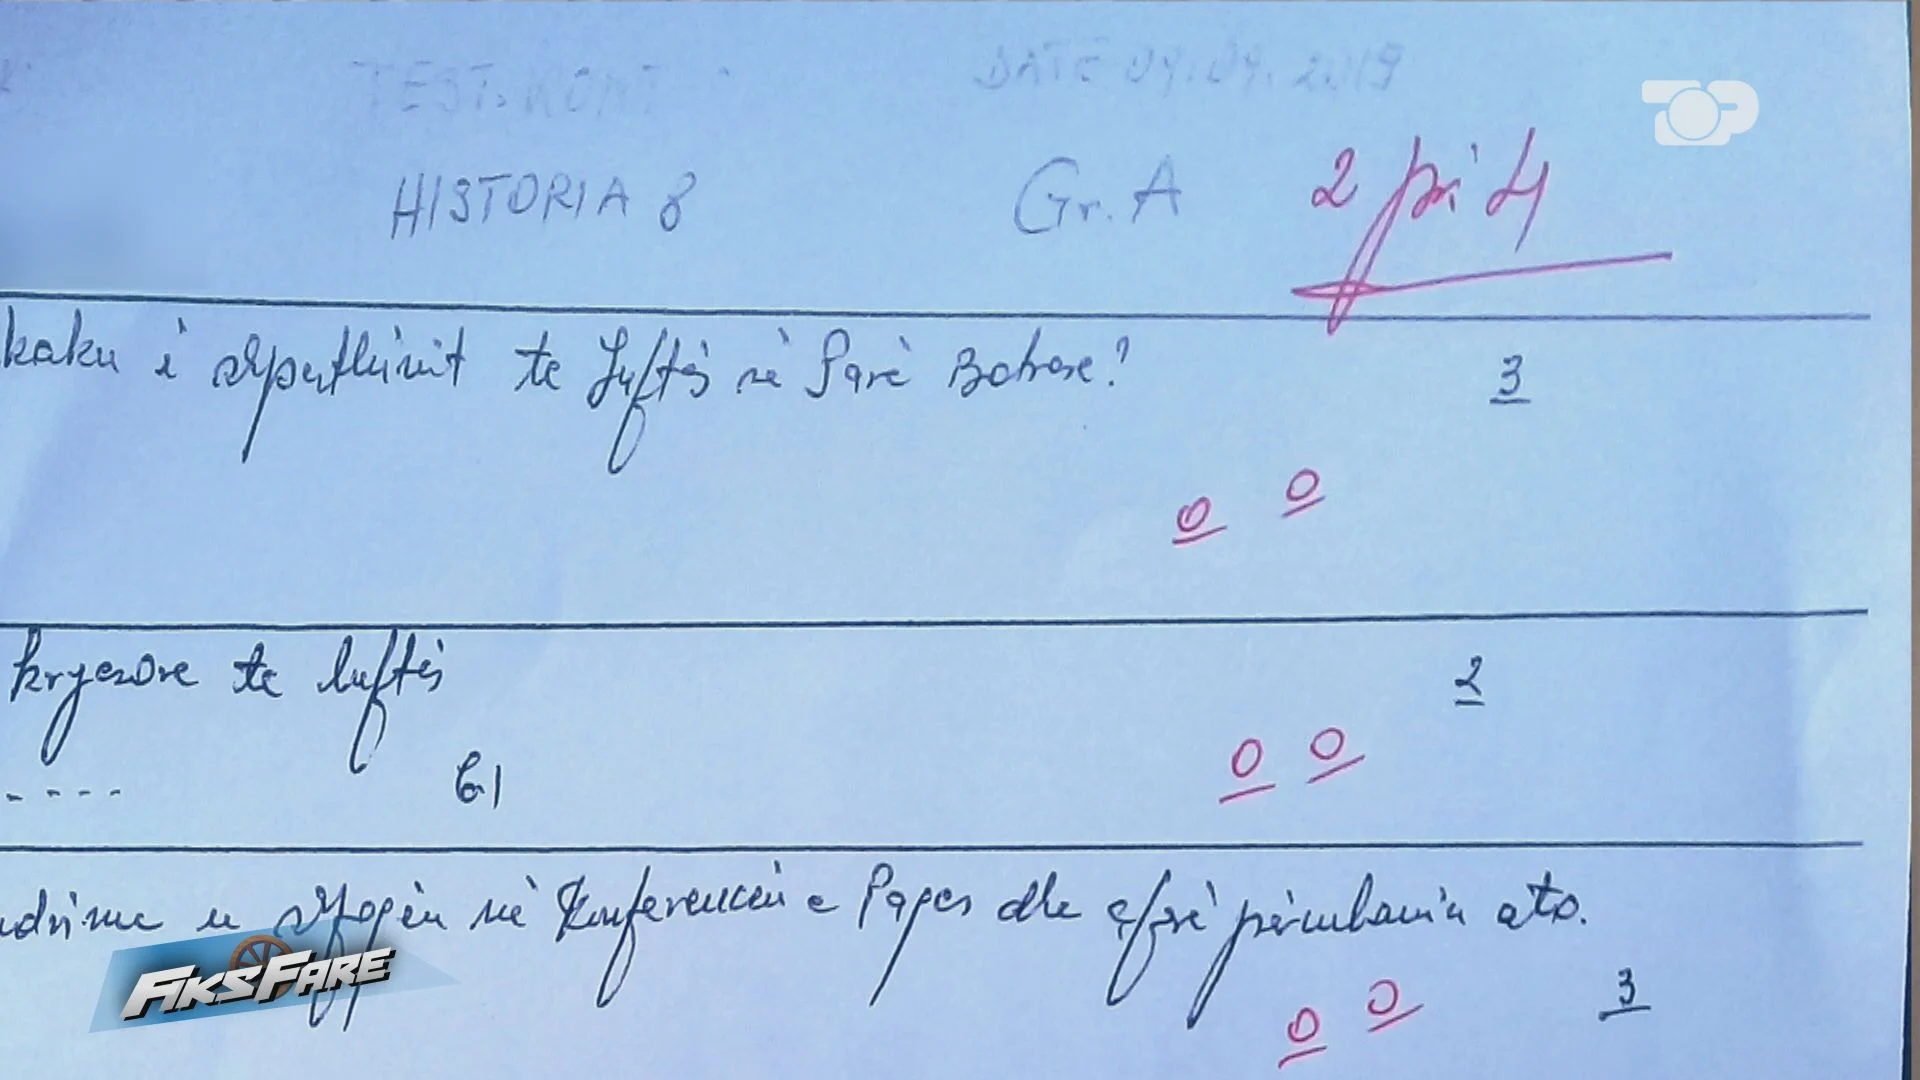 TEST. KONT DATË 09.04.2019
TOP
HISTORIA 8 Gr. A 2 për 4
kaku i shpërthimit te Luftës së Parë Botrore? 3
0 0
kryesore te luftës 2
.... b.1 0 0
udrime u shfaqën në Konferencën e Paqes dhe çfarë përmbanin ato.
FIKS FARE
0 0 3